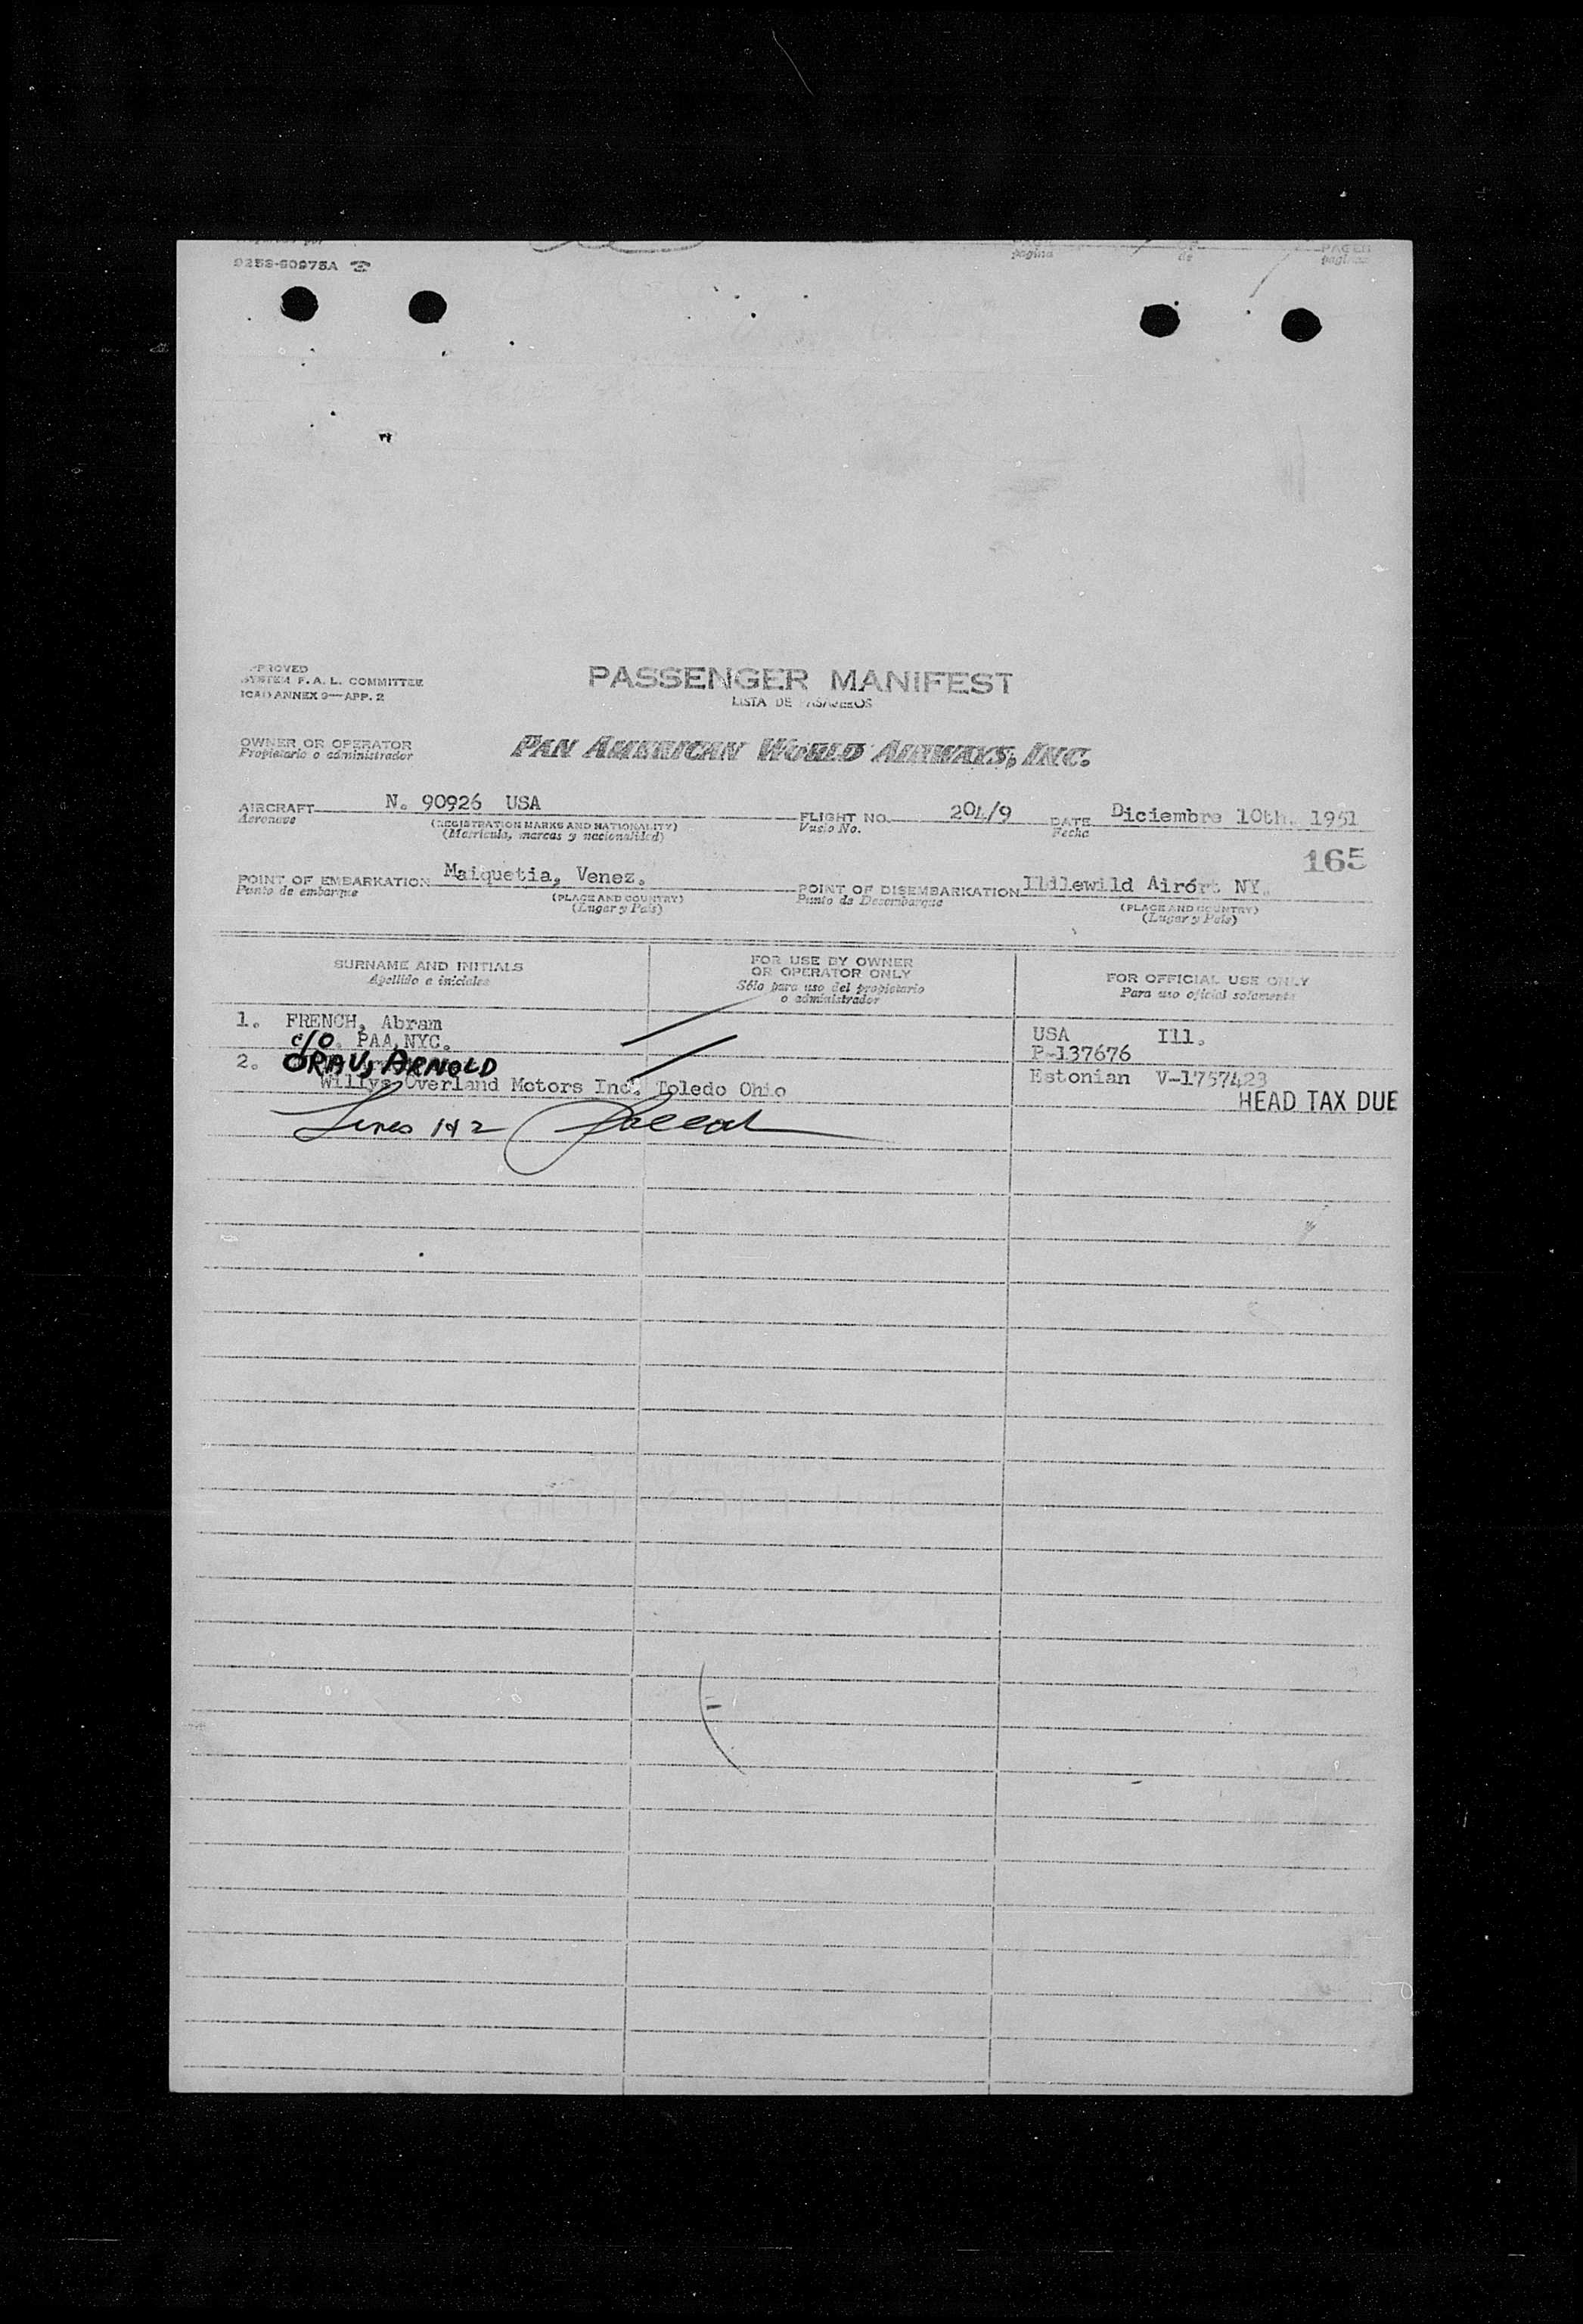 9258-60975A
PAGES
página de páginas
APPROVED
SYSTEM F. A. L. COMMITTEE
ICAO ANNEX 9—APP. 2
PASSENGER MANIFEST
LISTA DE PASAJEROS
OWNER OR OPERATOR
Propietario o administrador
PAN AMERICAN WORLD AIRWAYS, INC.
AIRCRAFT N. 90926 USA FLIGHT NO. 204/9 DATE Diciembre 10th. 1951
Aeronave (REGISTRATION MARKS AND NATIONALITY) Vuelo No. Fecha
(Matrícula, marcas y nacionalidad)
165
POINT OF EMBARKATION Maiquetia, Venez. POINT OF DISEMBARKATION Ildlewild Airórt NY.
Punto de embarque (PLACE AND COUNTRY) Punto de Desembarque (PLACE AND COUNTRY)
(Lugar y País) (Lugar y País)
SURNAME AND INITIALS FOR USE BY OWNER OR OPERATOR ONLY FOR OFFICIAL USE ONLY
Apellido e iniciales Sólo para uso del propietario o administrador Para uso oficial solamente
1. FRENCH, Abram USA Ill.
c/o. PAA,NYC. P-137676
2. ORAV, ARNOLD Estonian V-1757423
Willys Overland Motors Inc. Toledo Ohio
HEAD TAX DUE
Lines 1&2